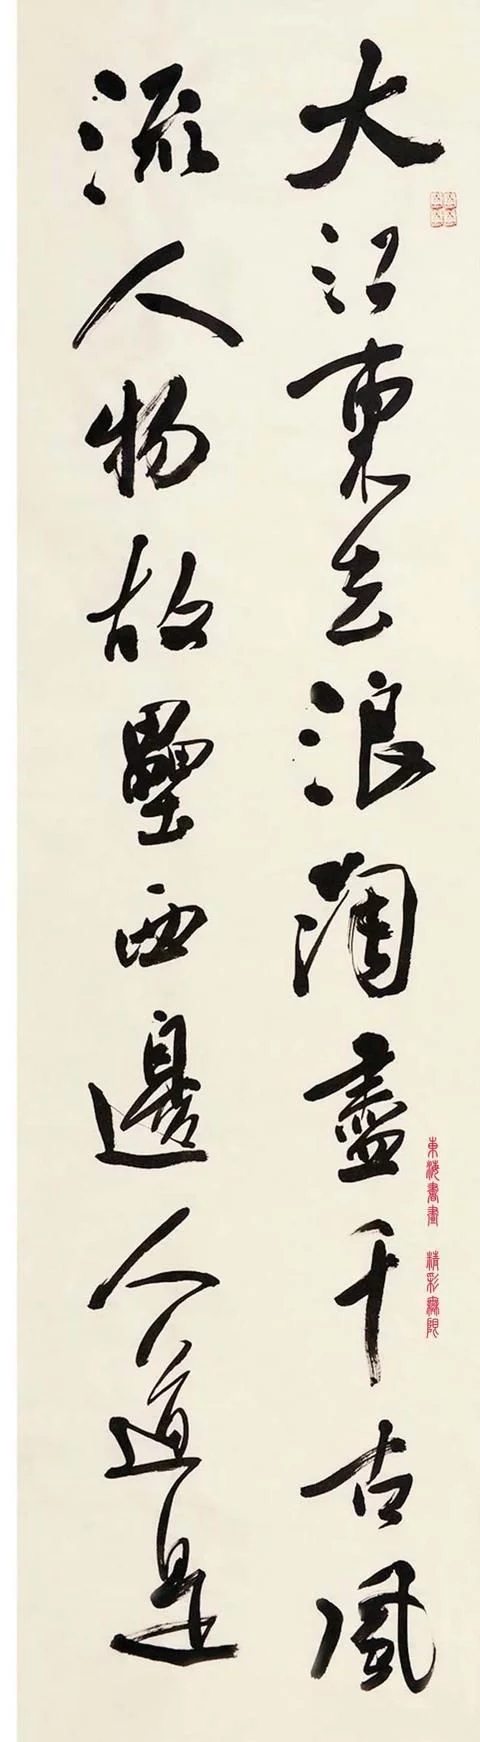 大江東去浪淘盡千古風
流人物故壘西邊人道是
東海書畫 精彩無限